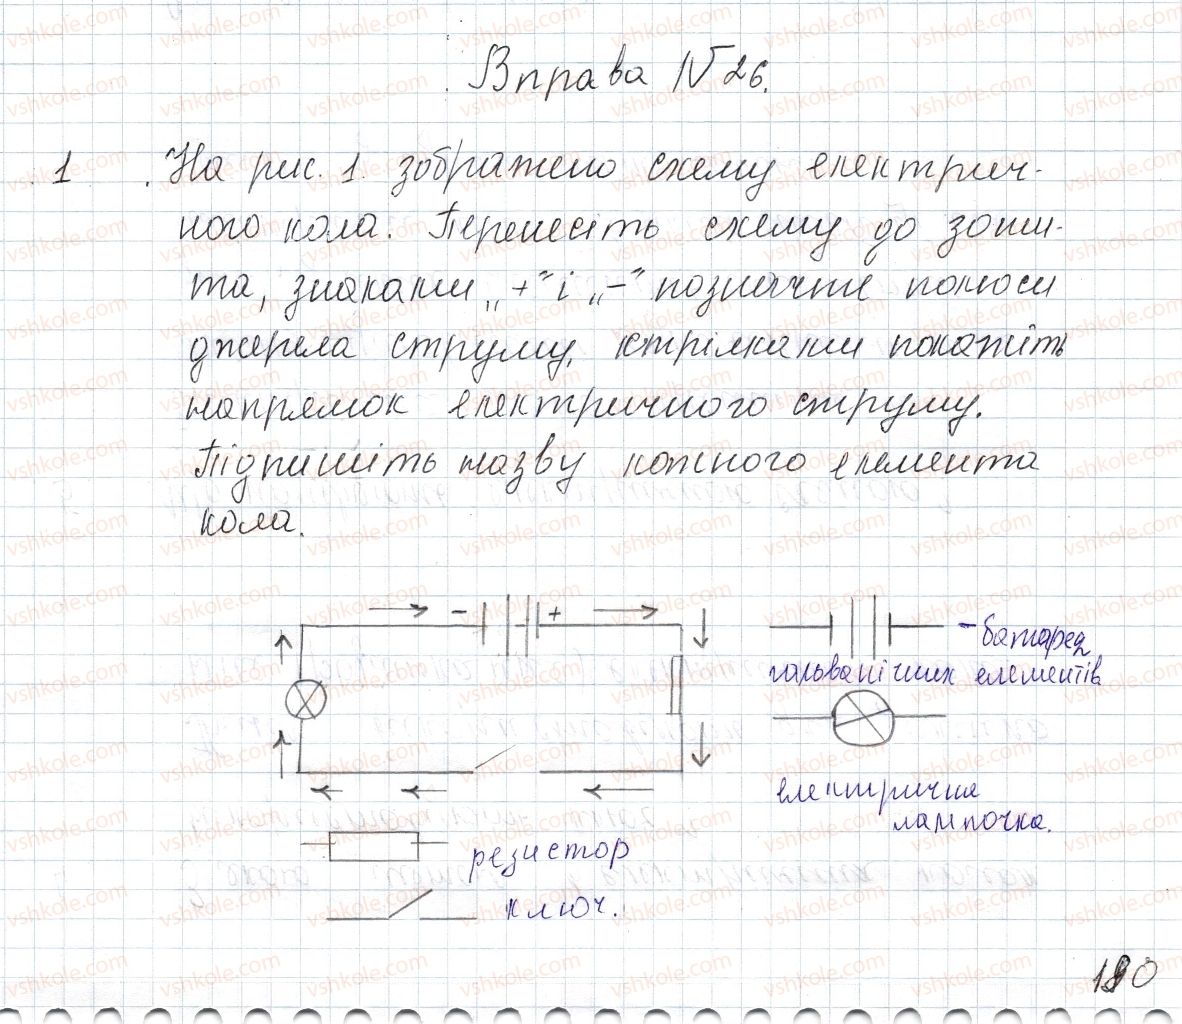 Вправа №26.
1 . На рис. 1. зображено схему електрич-
ного кола. Перенесіть схему до зоши-
та, знаками „+" і „-" позначте полюси
джерела струму, стрілками покажіть
напрямок електричного струму.
Підпишіть назву кожного елемента
кола.
- +
- батарея
гальванічних елементів
електрична
лампочка.
резистор
ключ.
190
vshkole.com